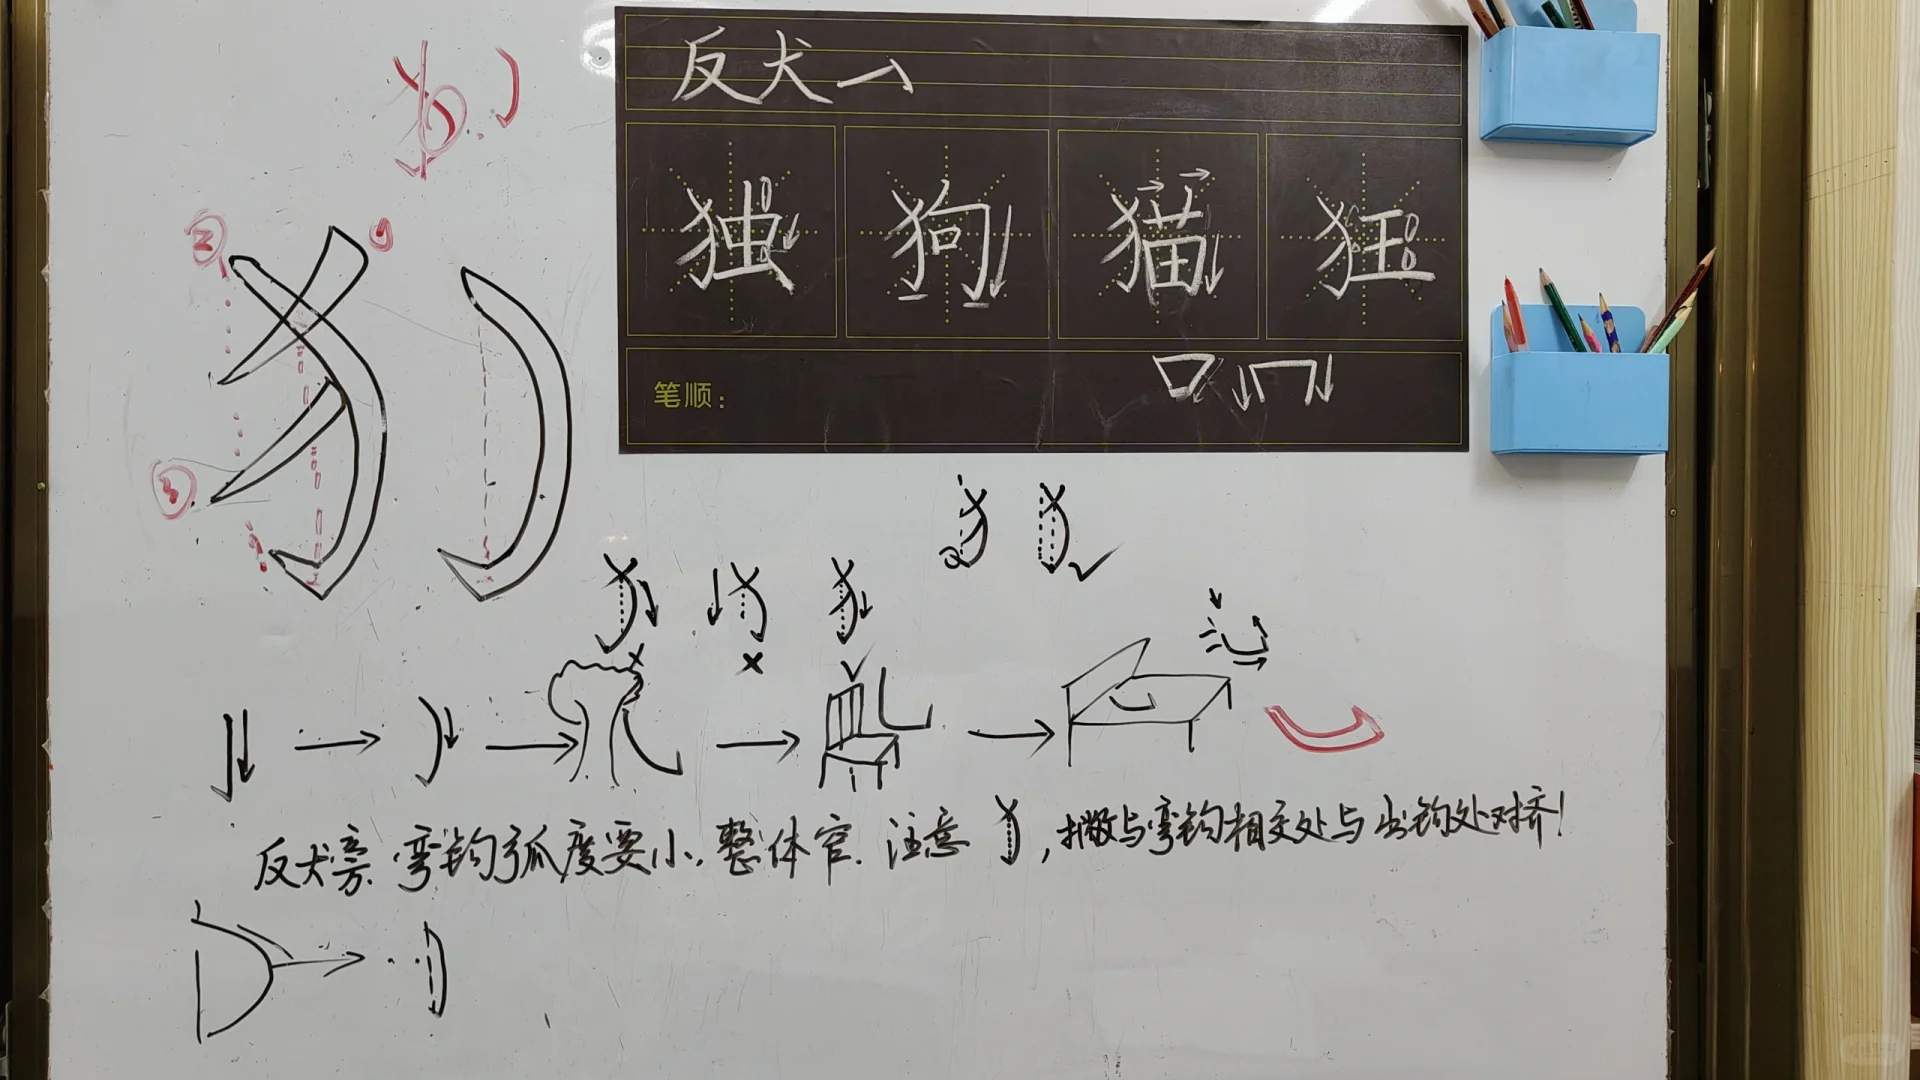 反犬→
独 狗 猫 狂
笔顺：
反犬旁.弯钩弧度要小.整体窄.注意犭,撇与弯钩相交处与出钩处对齐!